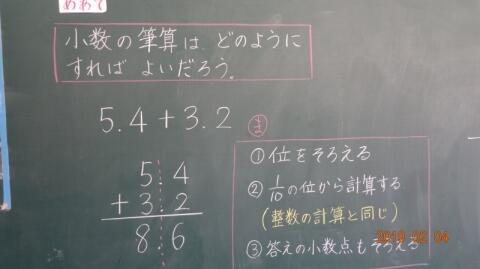 めあて
小数の筆算は、どのように
すればよいだろう。
5.4+3.2
5.4
+3.2
8.6
ま
①位をそろえる
②1/10の位から計算する
(整数の計算と同じ)
③答えの小数点もそろえる
2019 02 04